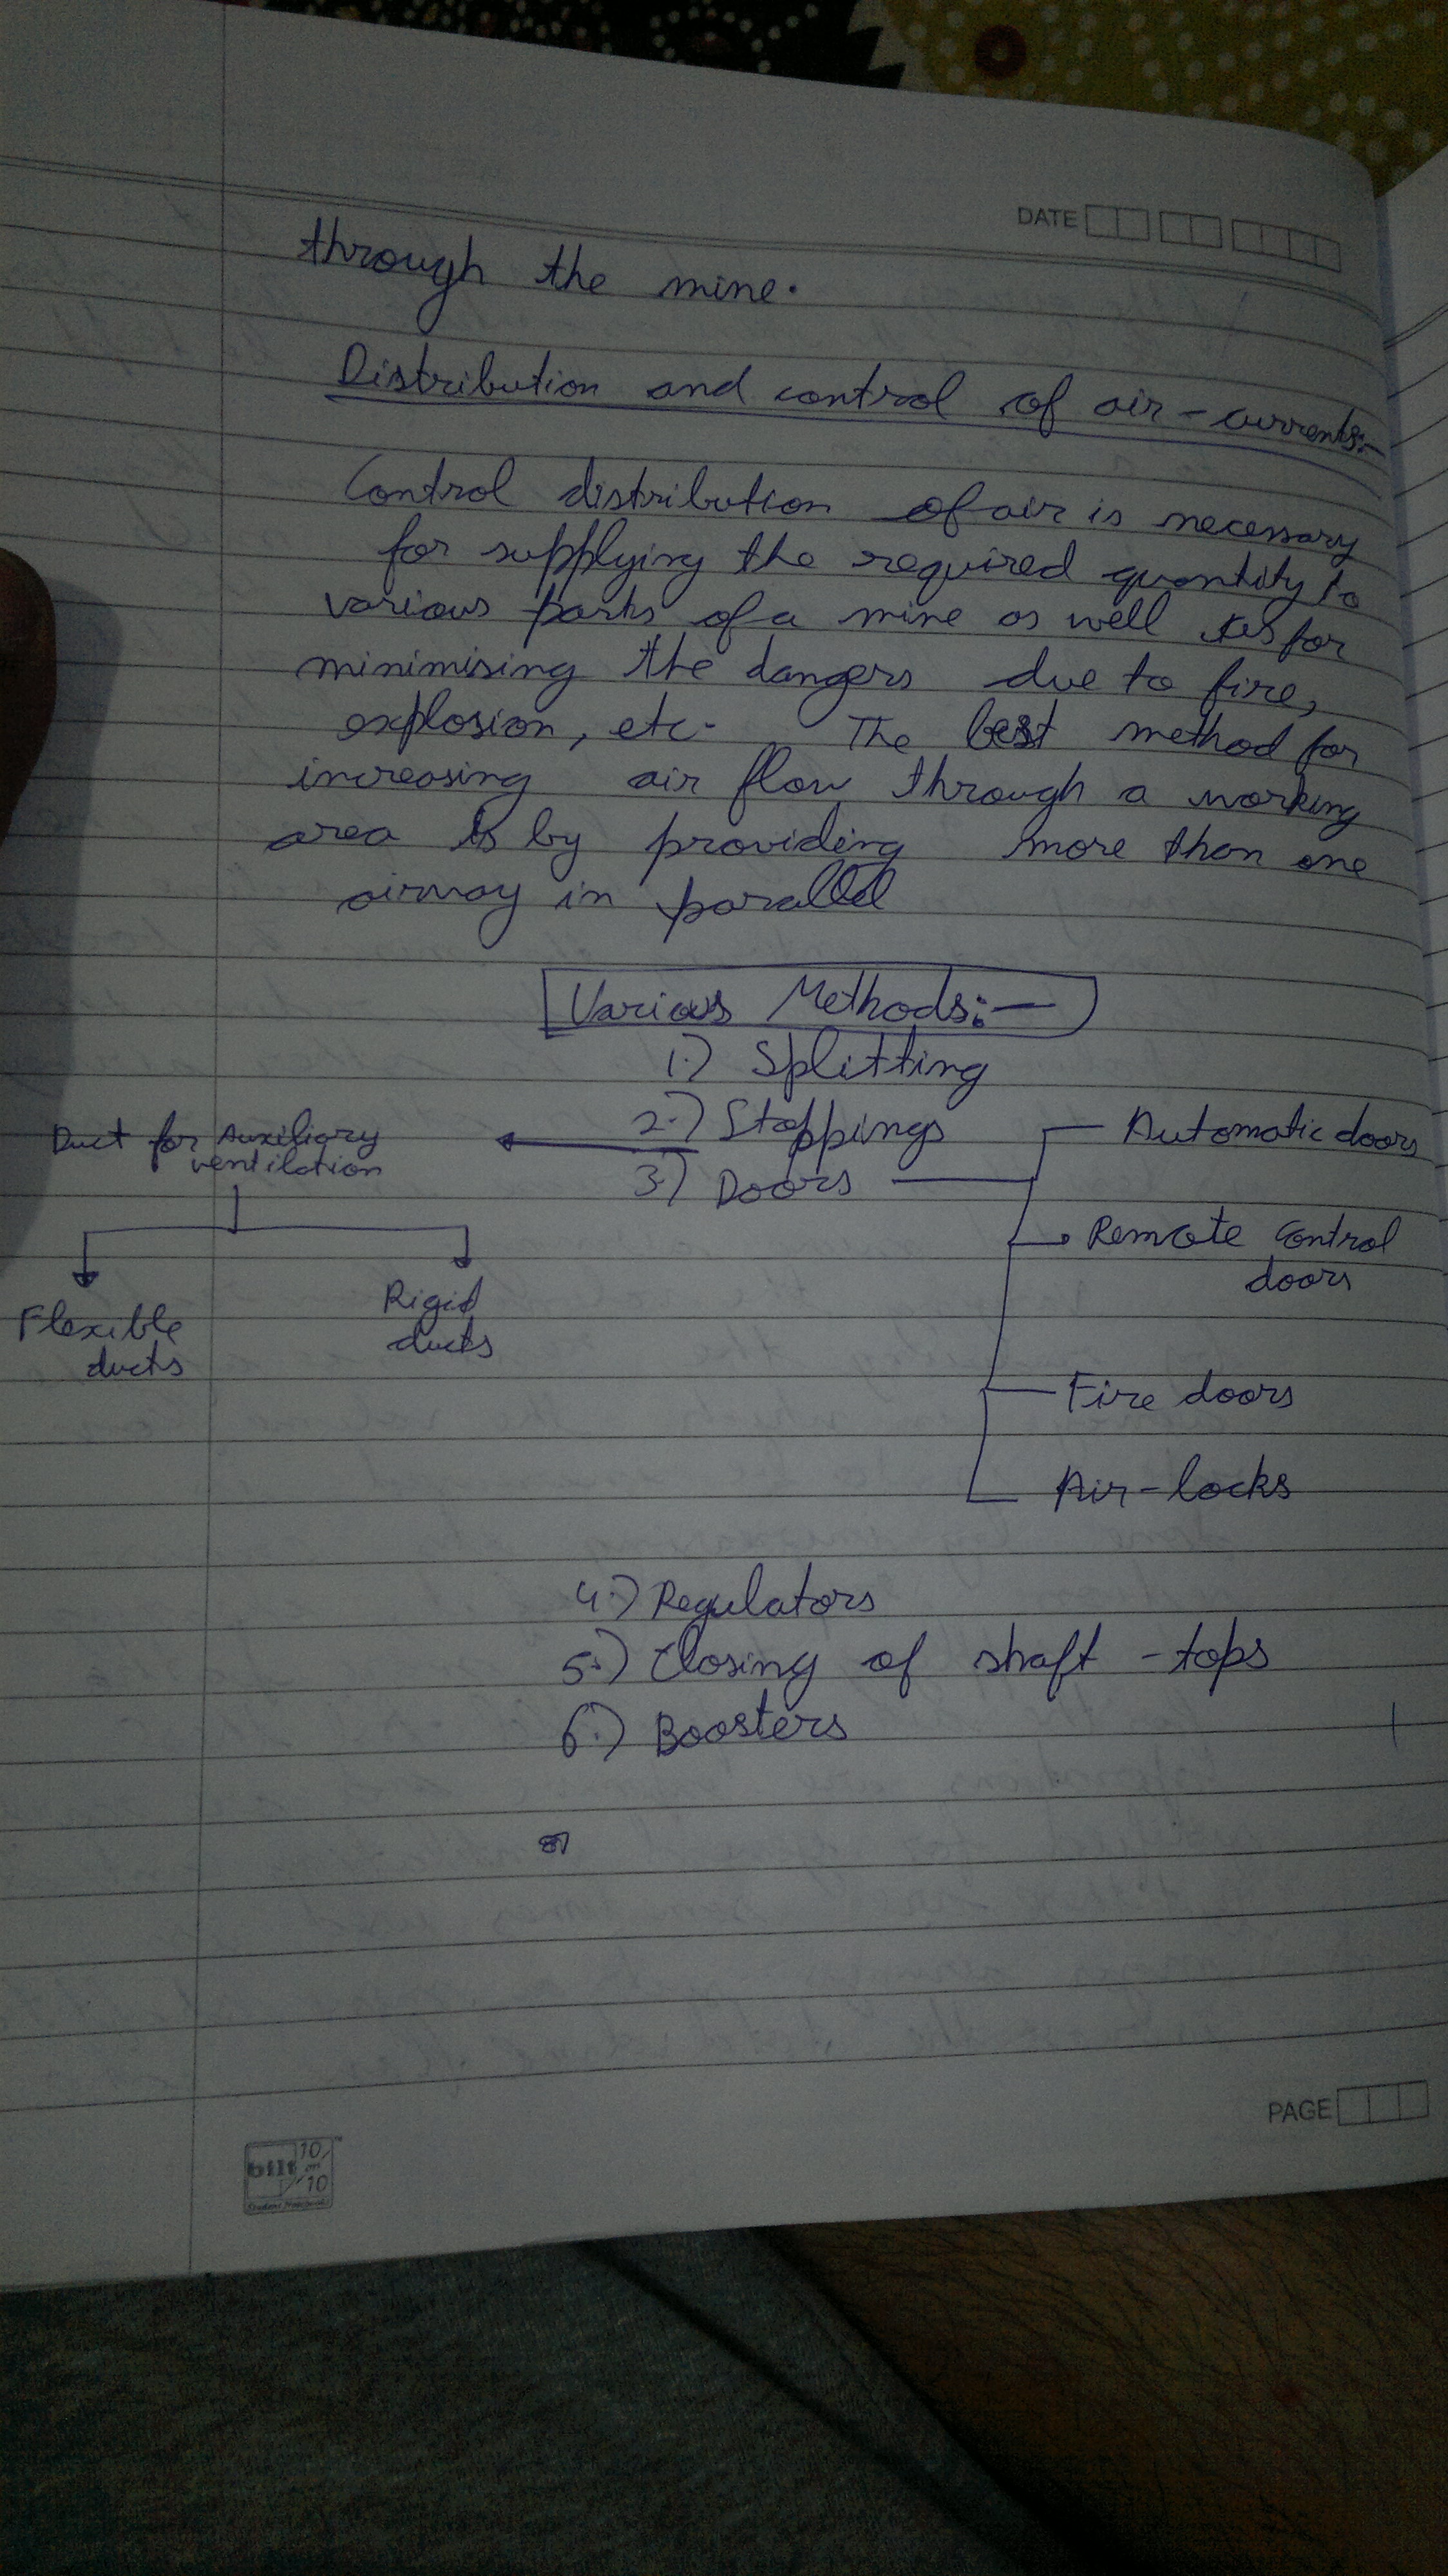 DATE
through the mine.
Distribution and control of air-currents:-
Control distribution of air is necessary
for supplying the required quantity to
various parts of a mine as well as for
minimising the dangers due to fire,
explosion, etc. The best method for
increasing air flow through a working
area is by providing more than one
airway in parallel
Various Methods:-
1.) Splitting
2.) Stoppings
Duct for Auxiliary
ventilation
Flexible
ducts
Rigid
ducts
3.) Doors
Automatic doors
Remote Control
doors
Fire doors
Air-locks
4.) Regulators
5.) Closing of shaft-tops
6.) Boosters
PAGE
bilt 10 on 10